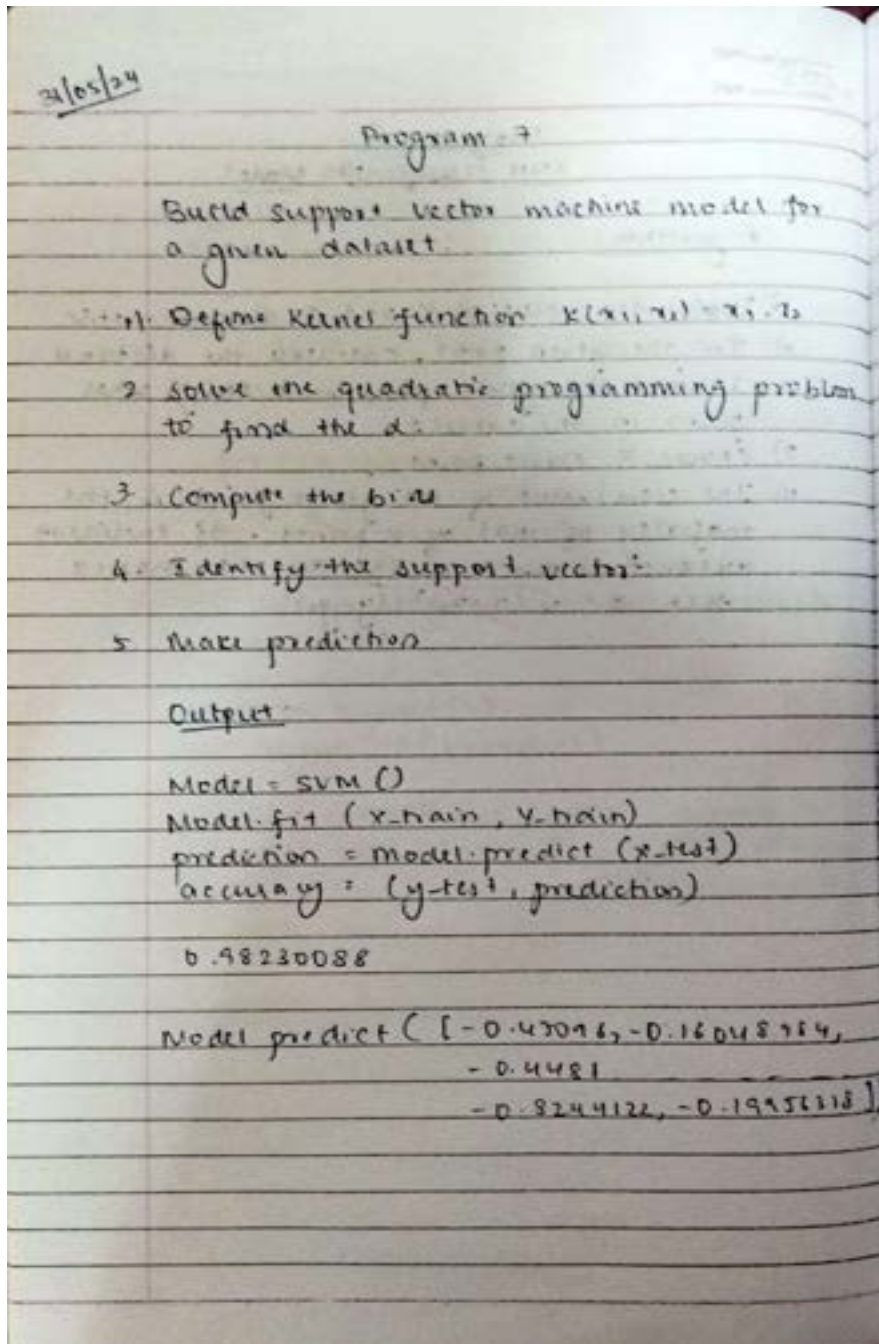 31/05/24
Program-7
Build support vector machine model for
a given dataset.
1. Define Kernel function K(x₁, x₂) = x₁.x₂
2 solve the quadratic programming problem
to find the α.
3 Compute the bias
4. Identify the support vector:
5 Make prediction
Output
Model = SVM ()
Model.fit (x_train, y_train)
prediction = model.predict (x_test)
accuracy = (y_test, prediction)
0.98230088
Model predict ( [-0.47096, -0.16048964,
-0.4481
-0.8244122, -0.19956318]